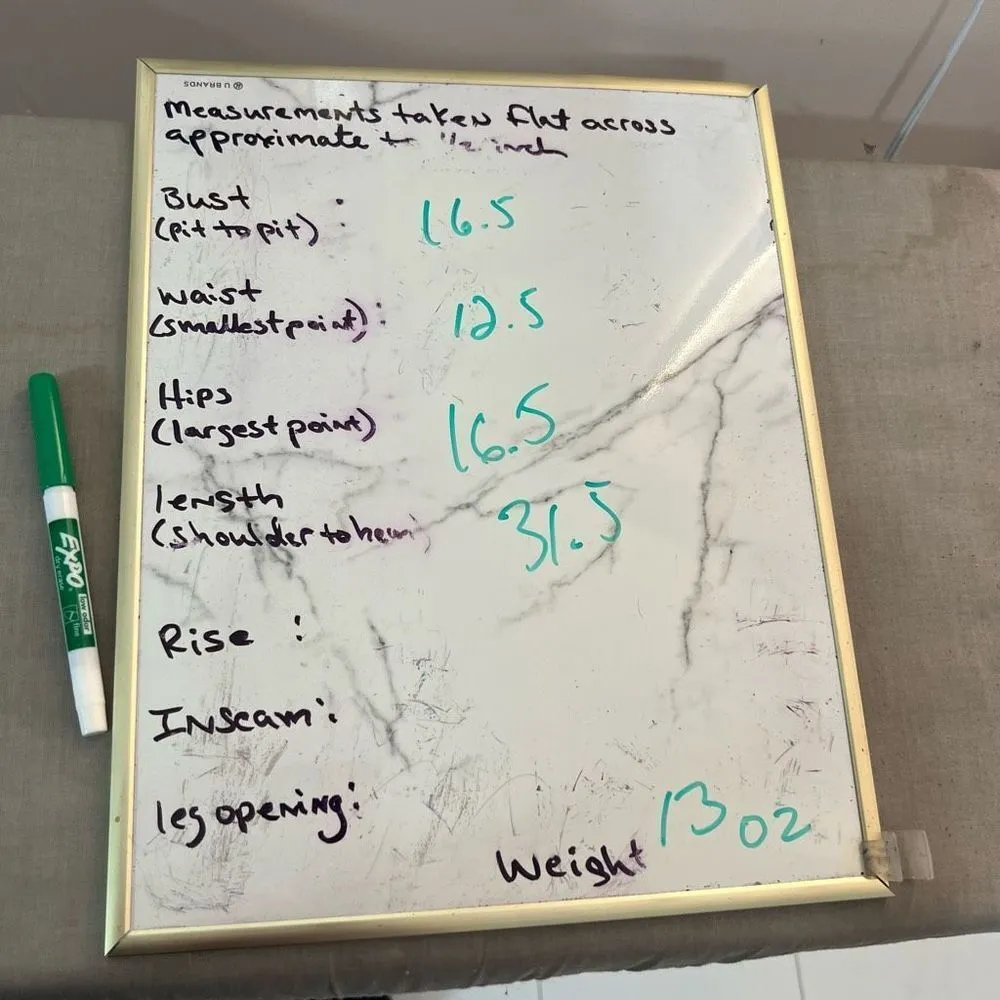 U BRANDS
Measurements taken flat across
approximate to 1/2 inch
Bust :
(pit to pit)
16.5
waist
(smallest point) :
12.5
Hips
(largest point)
16.5
length
(shoulder to hem)
31.5
Rise :
Inseam :
leg opening :
Weight
13 oz
EXPO
dry erase
low odor
fine